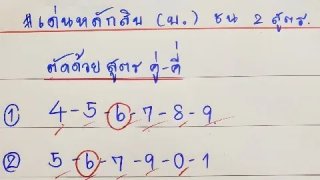 #เด่นหลักสิบ (บ.) ชน 2 สูตร.
ตัดด้วย สูตร คู่-คี่
① 4-5-6-7-8-9
② 5-6-7-9-0-1